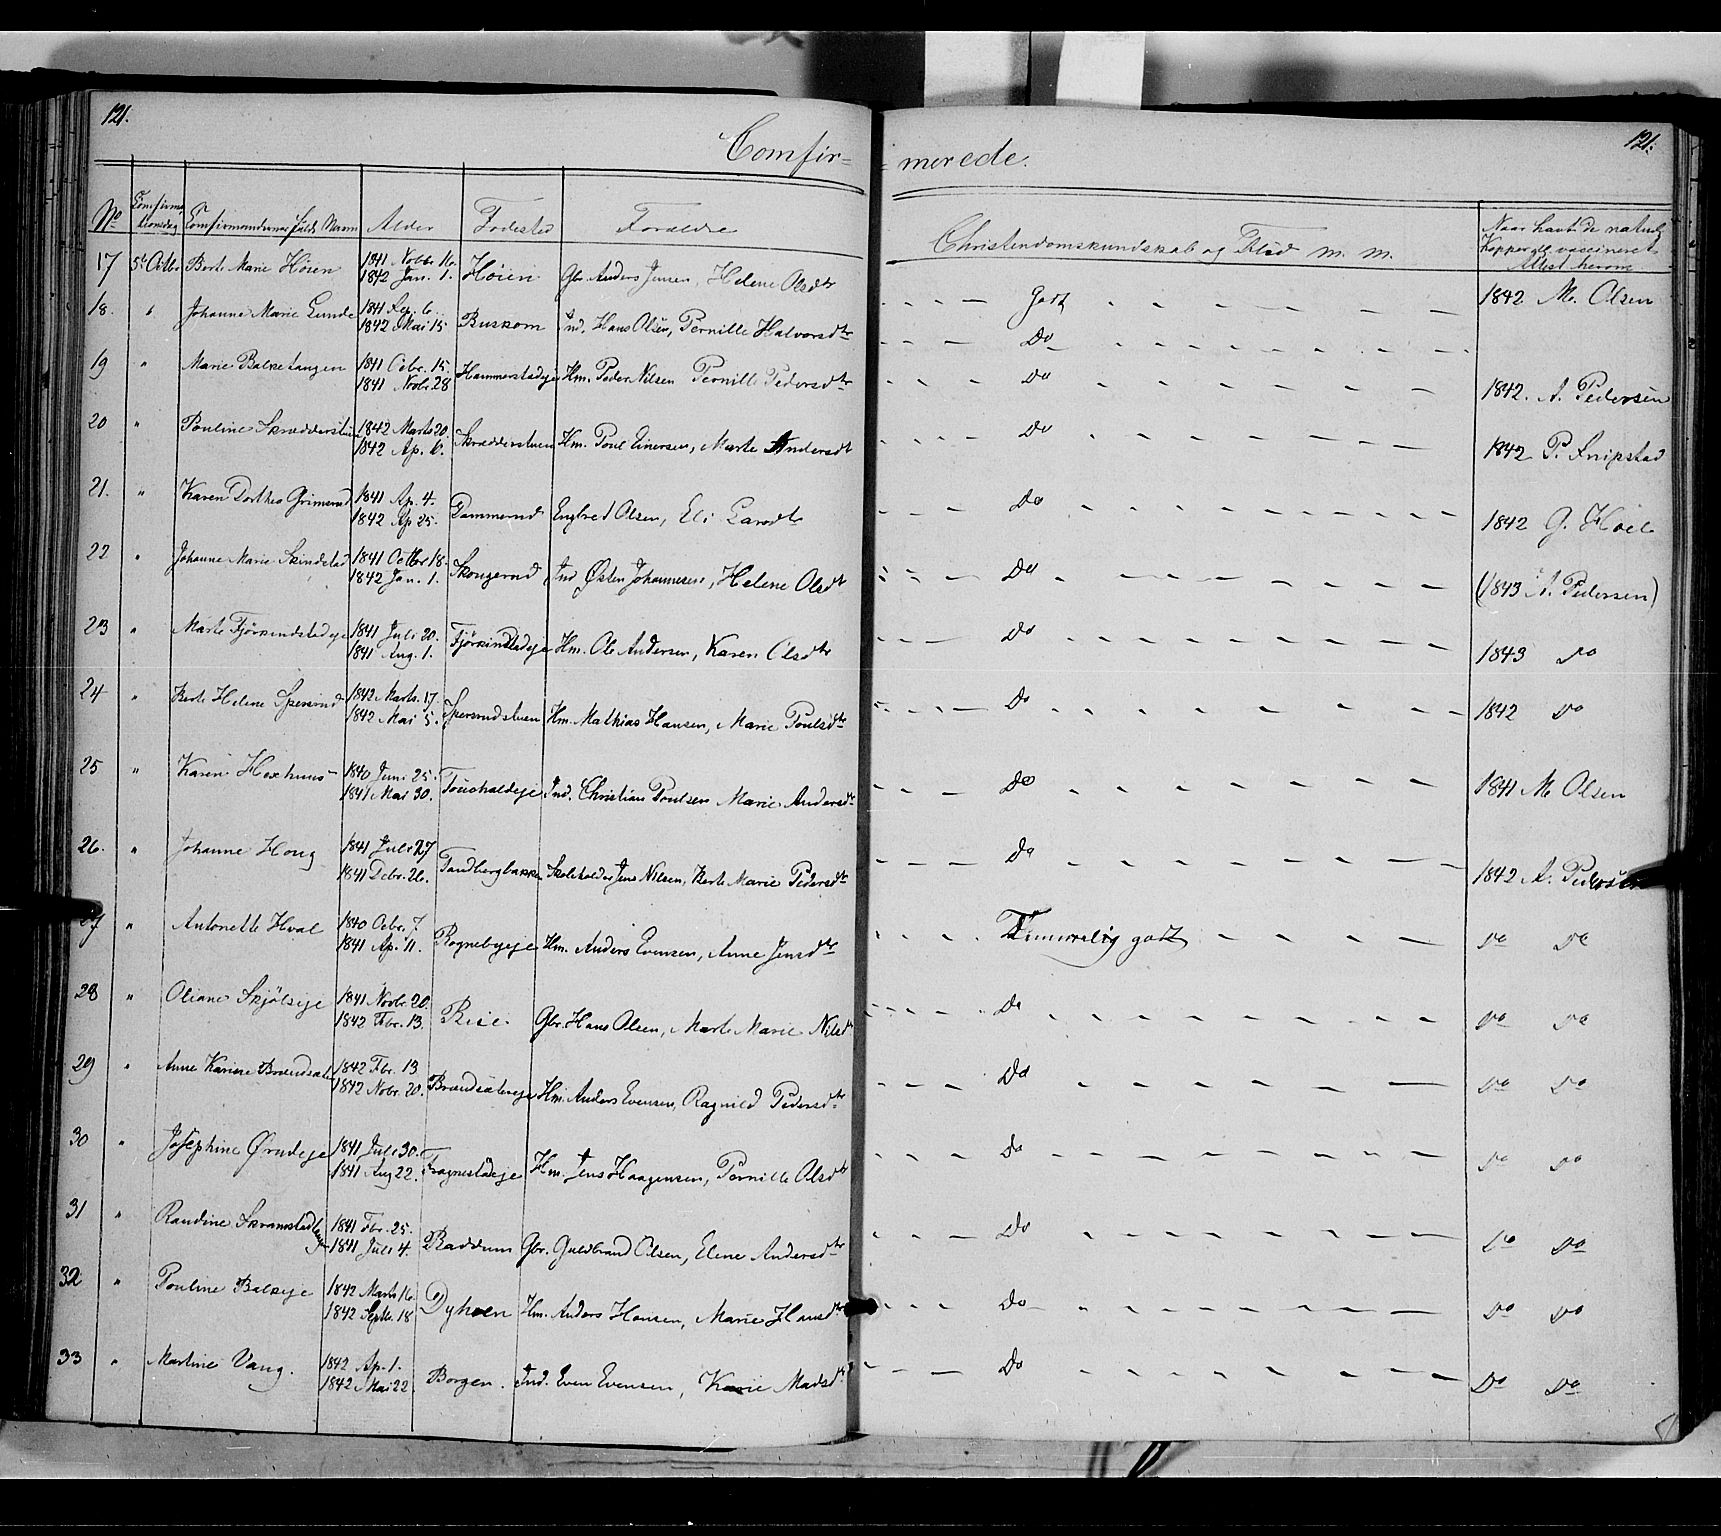 121.
121.
Comfir=
=merede.
No
Comfirma
tionsdag
Comfirmandernes fulde Navn
Alder
Fødested
Forældre
Christendomskundskab og Flid m. m.
Naar havt de naturl.
Kopper ell. vaccineret
Attest herom
17 5te Octbr. Berte Marie Høien 1841 Novbr. 16. 1842 Jan. 1. Høien Gbr. Anders Jensen, Helene Olsdtr Godt 1842 M. Olsen
18. " Johanne Marie Lunde 1841 Sep. 6. 1842 Mai 15 Buskom Ind. Hans Olsen, Pernille Halvorsdtr Do
19 " Marie Balketangen 1841 Octbr. 15. 1841 Novbr. 28 Hammerstadeje Hm. Peder Nilsen Pernille Pedersdtr Do 1842. A. Pedersen
20 " Pouline Skrædderstuen 1842 Marts 20 1842 Ap. 6. Skrædderstuen Hm. Poul Einersen, Marte Andersdt Do 1842 P. Fnipstad
21. " Karen Dorthea Grimerud 1841 Ap. 4. 1842 Ap 25. Dammerud Engbret Olsen, Eli Larsdtr Do 1842 G. Hoel
22 " Johanne Marie Skindstad 1841 Octbr 18. 1842 Jan. 1. Skongerud Ind Østen Johannesen, Helene Olsdt Do (1843 A. Pedersen)
23 " Marte Fjørkindstadeje 1841 Juli 20. 1841 Aug. 1. Fjørkindstadeje Hm. Ole Andersen, Karen Olsdtr Do 1843 Do
24 " Berte Helene Spersrud 1842 Marts. 17. 1842 Mai 5. Spersrudstuen Hm. Mathias Hansen, Marie Poulsdtr Do 1842 Do
25 " Karen Hexhuus 1840 Juni 25. 1841 Mai 30. Ind. Christian Poulsen Marie Andersdtr Do 1841 M. Olsen
26. " Johanne Houg 1841 Juli 27 1841 Decbr. 26. Sandbergbakken Skoleholder Jens Nilsen, Berte Marie Pedersdtr Do 1842 A. Pedersen
27 " Antonette Hval 1840 Octbr. 7. 1841 Ap. 11. Rognebyeje Hm. Anders Evensen, Anne Jensdtr Temmelig godt Do Do
28 " Oliane Skjølseje 1841 Novbr. 20. 1842 Fbr. 13. Riise Gbr. Hans Olsen, Marte Marie Nilsdtr Do Do Do
29 " Anne Karine Brændsæter 1842 Fbr. 13 1842 Novbr. 20. Brændsætereje Hm. Anders Evensen, Ragnild Pedersdtr Do Do Do
30 " Josephine Ørudeje 1841 Juli 30. 1841 Aug 22. Fragnestadeje Hm. Jens Haagensen, Pernille Olsdtr Do Do Do
31 " Randine Skramstad 1841 Fbr. 25. 1841 Juli 4. Raddum Gbr. Guldbrand Olsen, Elene Andersdtr Do Do Do
32 " Pouline Balkeje 1842 Marts 16. 1842 Septbr. 18 Dyhren Hm. Anders Hansen, Marie Hansdtr Do Do Do
33 " Martine Vang. 1842 Ap. 1. 1842 Mai 22. Borgen. Ind. Even Evensen, Karie Madsdtr Do Do Do